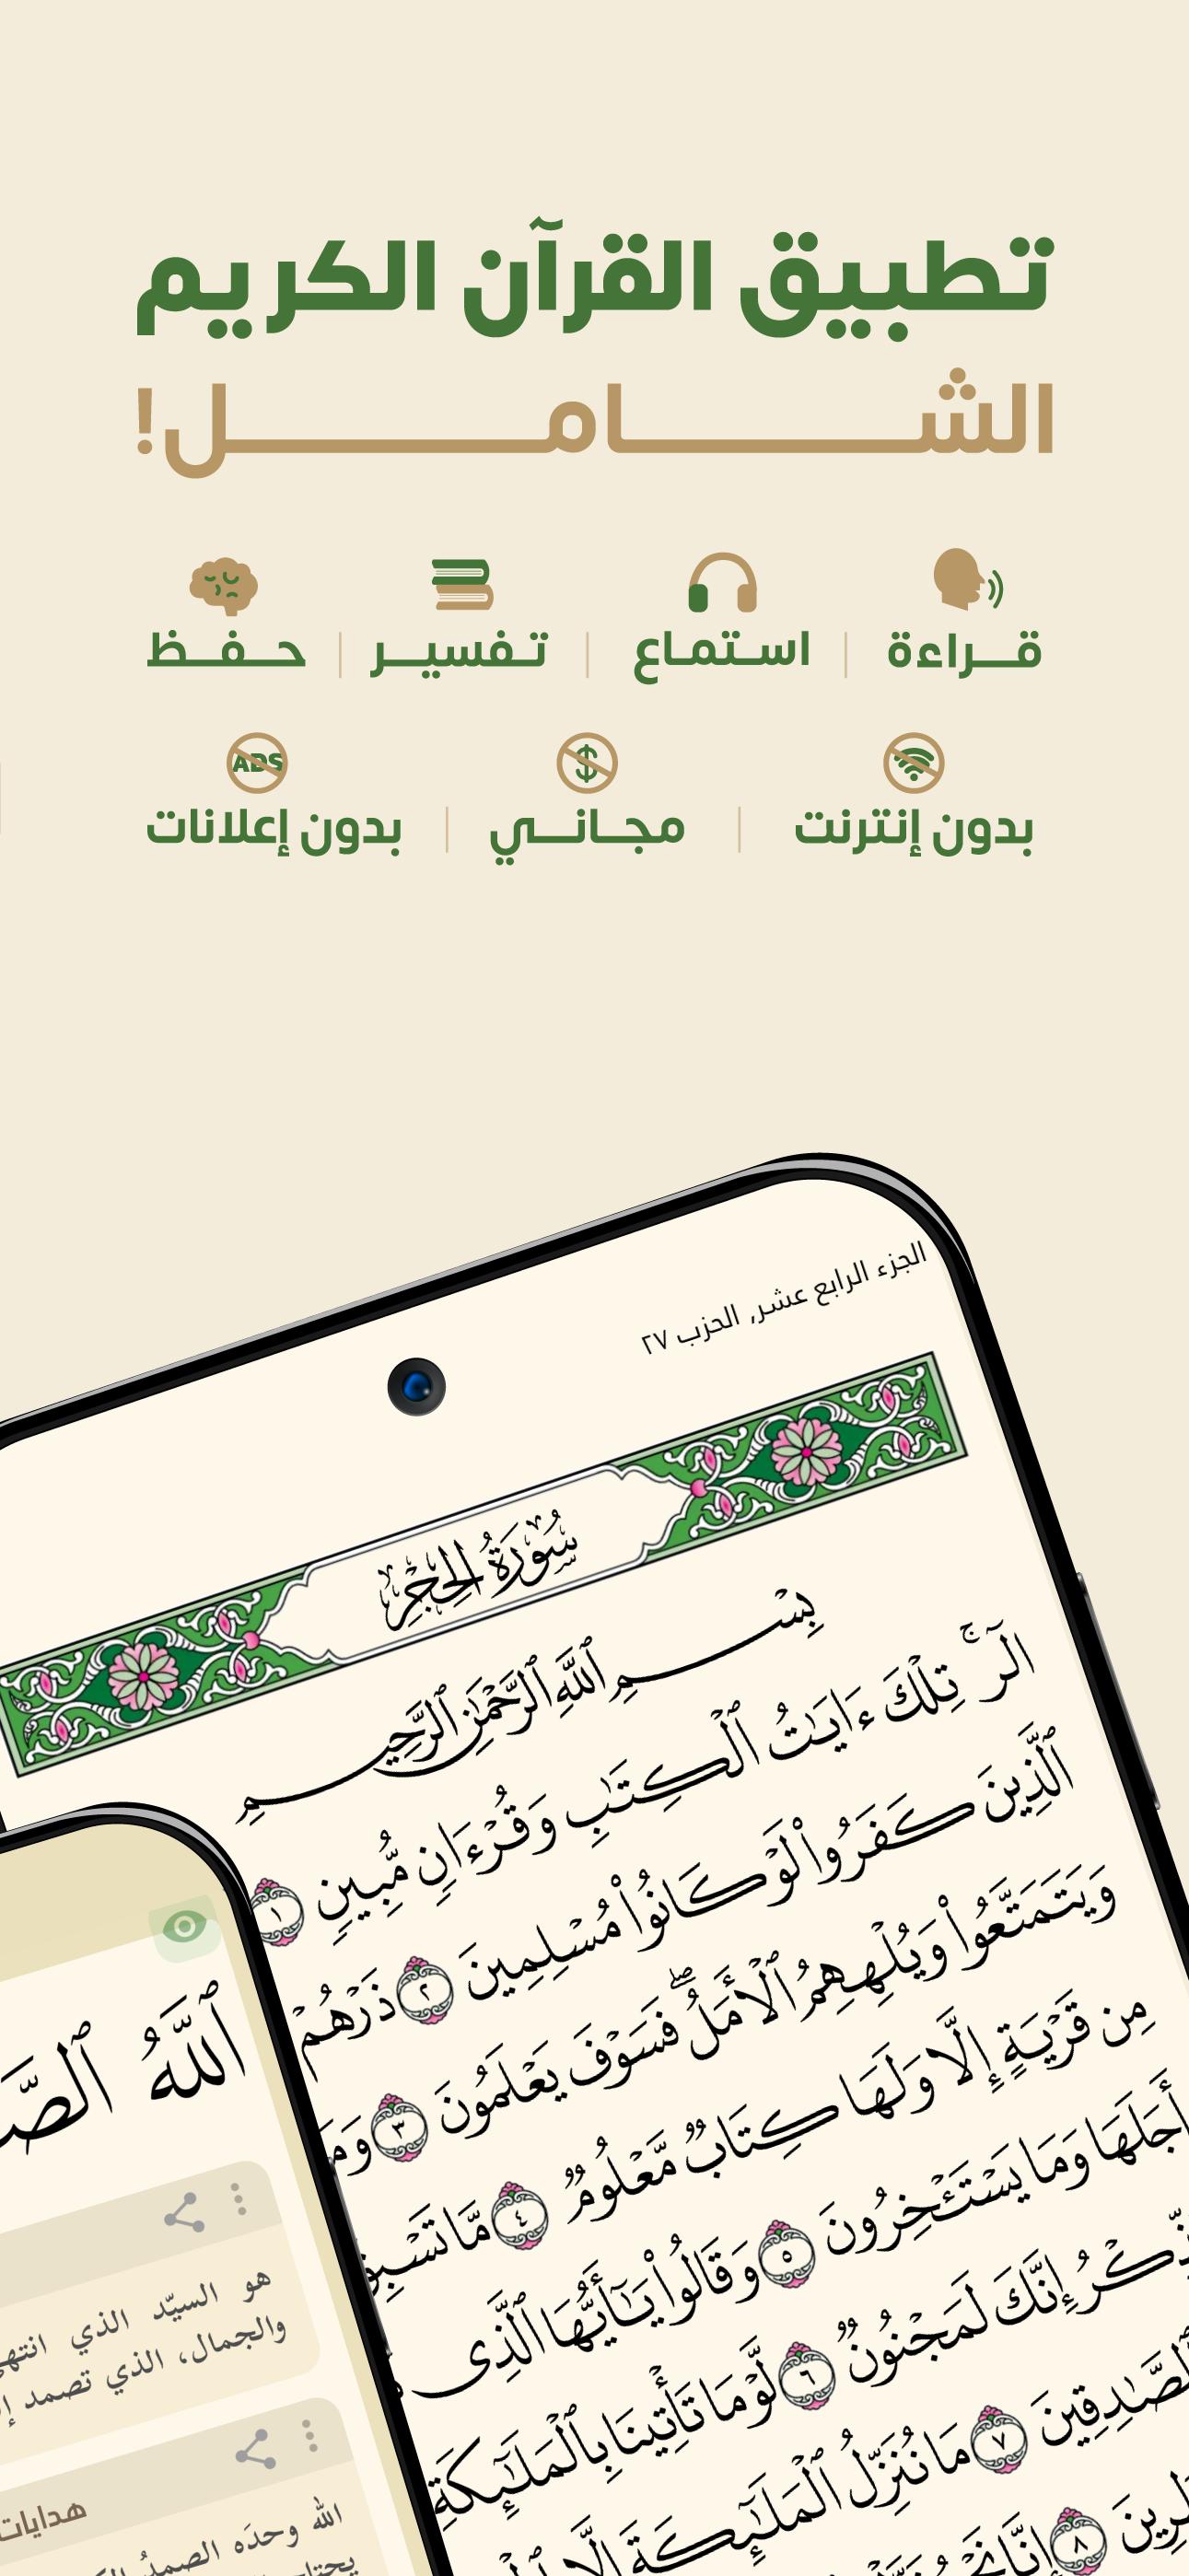 تطبيق القرآن الكريم
الشـــــــــامـــــــــل!
قـــراءة | استمـاع | تـفسيـــر | حـــفـــظ
ADS
$
بدون إنترنت | مجـــانـــي | بدون إعلانات
الجزء الرابع عشر, الحزب ٢٧
سُورَةُ الحِجْرِ
بِسْمِ ٱللَّهِ ٱلرَّحْمَٰنِ ٱلرَّحِيمِ
الٓر ۚ تِلْكَ ءَايَٰتُ ٱلْكِتَٰبِ وَقُرْءَانٍ مُّبِينٍ ١
ٱلَّذِينَ كَفَرُوا۟ لَوْ كَانُوا۟ مُسْلِمِينَ ٢ ذَرْهُمْ
وَيَتَمَتَّعُوا۟ وَيُلْهِهِمُ ٱلْأَمَلُ ۖ فَسَوْفَ يَعْلَمُونَ ٣
مِن قَرْيَةٍ إِلَّا وَلَهَا كِتَابٌ مَّعْلُومٌ ٤ مَّا
أَجَلَهَا وَمَا يَسْتَـْٔخِرُونَ ٥ وَقَالُوا۟ يَٰٓأَيُّهَا ٱلَّذِى
إِنَّكَ لَمَجْنُونٌ ٦ لَّوْ مَا تَأْتِينَا بِٱلْمَلَٰٓئِكَةِ
ٱلصَّٰدِقِينَ ٧ مَا نُنَزِّلُ ٱلْمَلَٰٓئِكَةَ إِلَّا
٨ إِنَّا
ٱللَّهُ
هو السيّد الذي
والجمال، الذي تصمد
هدايات
الله وحدَه الصمدُ